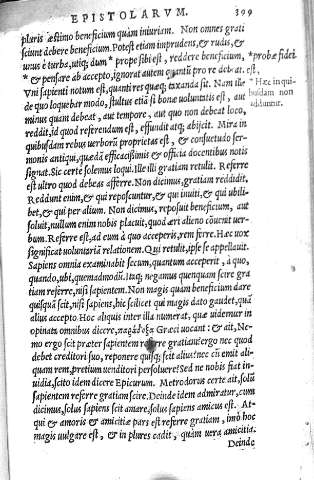 EPISTOLARVM. 399
pluris æstimo beneficium quàm iniuriam. Non omnes grati
sciunt debere beneficium. Potest etiam imprudens, & rudis, &
unus è turba, utiq; dum * prope sibi est, reddere beneficium,
* & pensare ab accepto, ignorat autem quantū pro re debeat.
Vni sapienti notum est, quanti res quæq; taxanda sit. Nam ille
de quo loquebar modo, stultus etiã si bonæ uoluntatis est, aut
minus quam debeat, aut tempore, aut quo non debeat loco,
reddit, id quod referendum est, effundit atq; abijcit. Mira in
quibusdam rebus uerborū proprietas est, & consuetudo ser-
monis antiqui, quædã efficacissimis & officia docentibus notis
signat. Sic certe solemus loqui. Ille illi gratiam retulit. Referre
est ultro quod debeas afferre. Non dicimus, gratiam reddidit.
Reddunt enim, & qui reposcuntur, & qui inuiti, & qui ubili-
bet, & qui per alium. Non dicimus, reposuit beneficium, aut
soluit, nullum enim nobis placuit, quod æri alieno cōuenit uer-
bum. Referre est, ad eum à quo acceperis, rem ferre. Hæc uox
significat uoluntariã relationem. Qui retulit, ipse se appellauit.
Sapiens omnia examinabit secum, quantum acceperit, à quo,
quando, ubi, quemadmodū. Itaq; negamus quenquam scire gra
tiam referre, nisi sapientem. Non magis quàm beneficium dare
quisquã scit, nisi sapiens, hic scilicet qui magis dato gaudet, quã
alius accepto. Hoc aliquis inter illa numerat, quæ uidemur in
opinata omnibus dicere, παράδοξα Græci uocant: & ait, Ne-
mo ergo scit præter sapientem referre gratiam? ergo nec quod
debet creditori suo, reponere quisq; scit alius? nec cū emit ali-
quam rem, pretium uenditori persoluere? Sed ne nobis fiat in-
uidia, scito idem dicere Epicurum. Metrodorus certe ait, solū
sapientem referre gratiam scire. Deinde idem admiratur, cum
dicimus, solus sapiens scit amare, solus sapiens amicus est. At-
qui & amoris & amicitiæ pars est referre gratiam, imò hoc
magis uulgare est, & in plures cadit, quàm uera amicitia.
Deinde
*probæ fidei
est,
*Hæc in qui-
busdam non
adduntur.